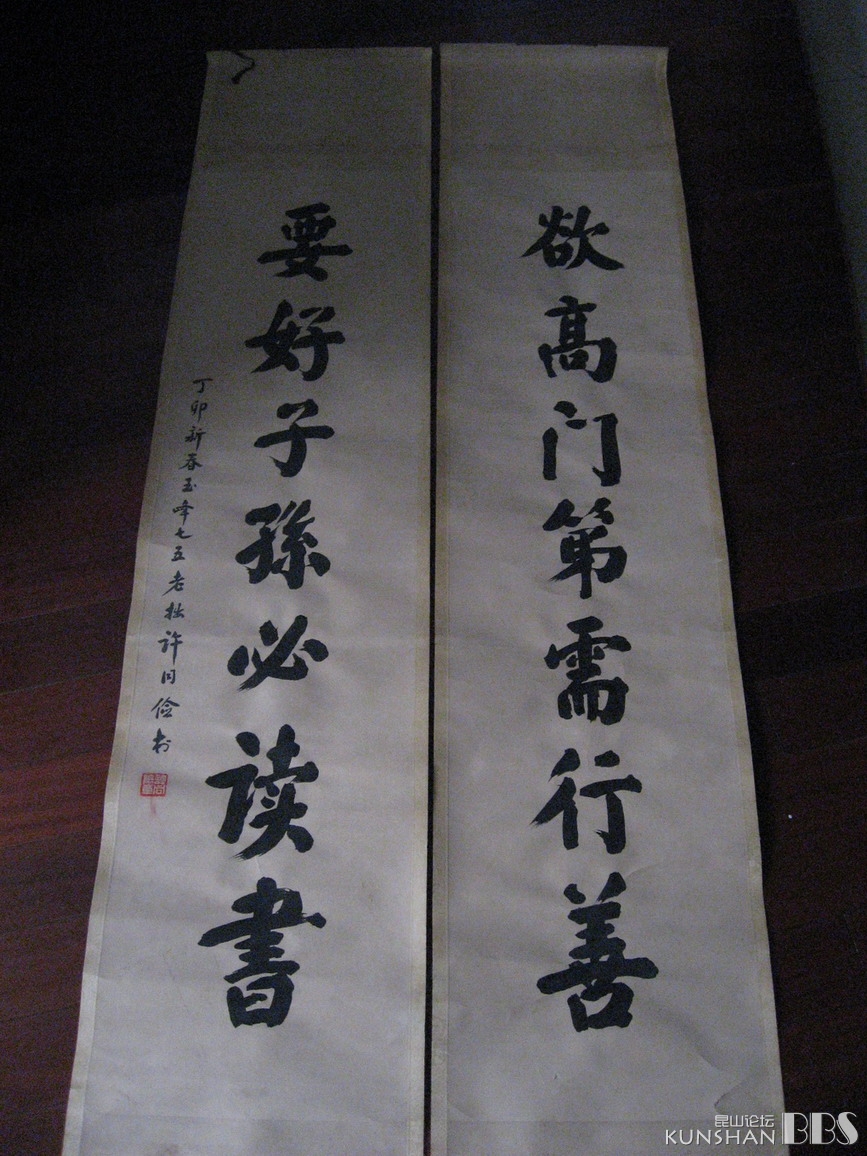 欲高门第需行善
要好子孫必读書
丁卯新春玉峰七五老拙许同俭书
昆山论坛
KUNSHAN BBS